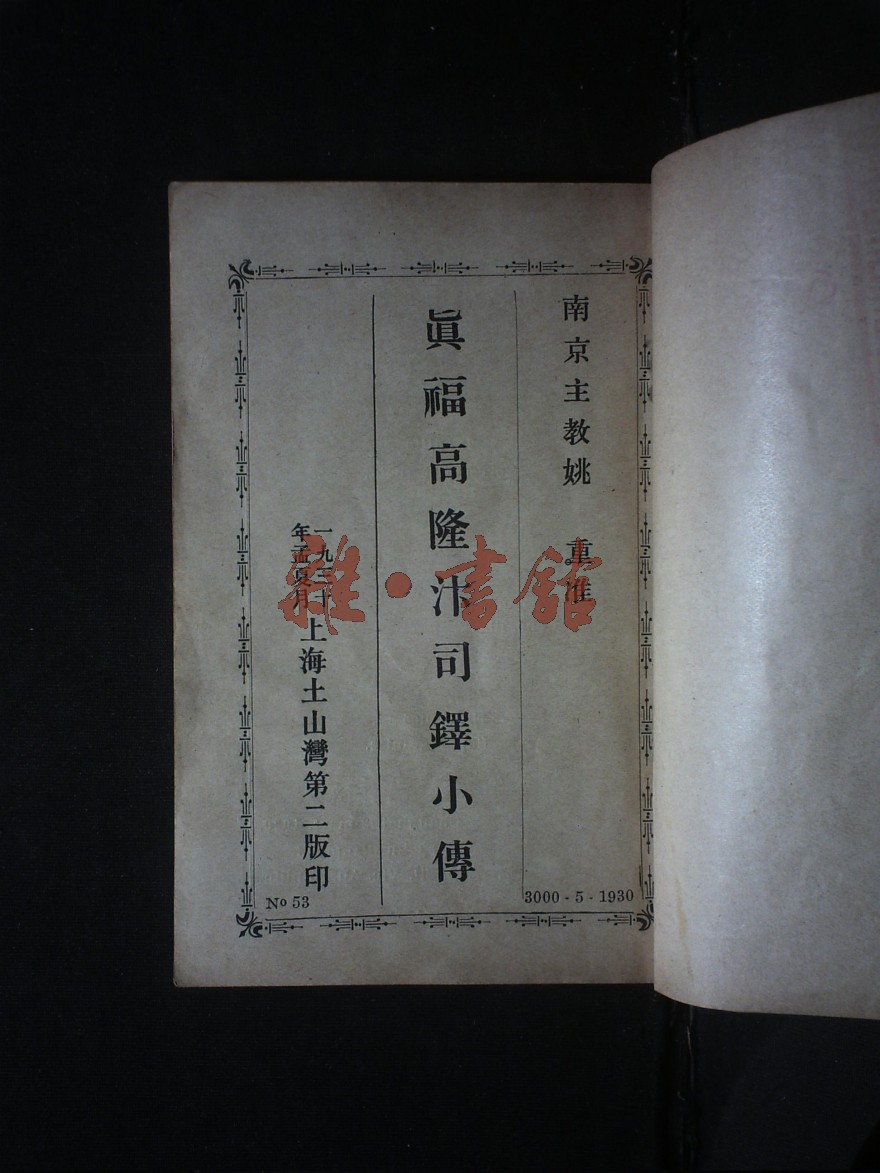 南京主教姚 重准
眞福高隆汴司鐸小傳
一九三十
年孟夏月
上海土山灣第二版印
No 53
3000 - 5 - 1930
雜·書館